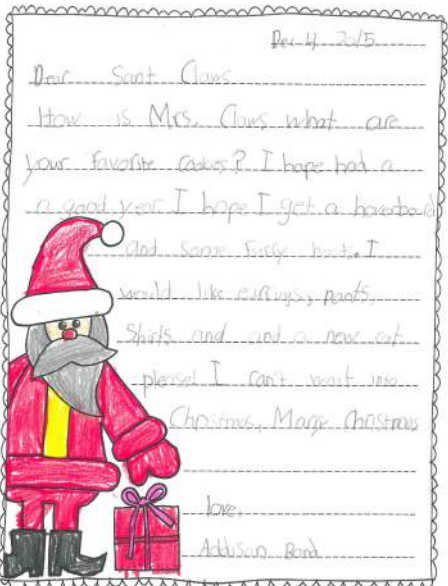 Dec 4 2015
Dear Sant Claws
How is Mrs. Claws what are
your favorite cookies? I hope had a
a good year I hope I get a hoverboard
and some fuzzy boots. I
would like earrings, pants,
shirts and and a new cat
please! I can't weast into
Christmas, Marye Christmas
love,
Addyson Bond